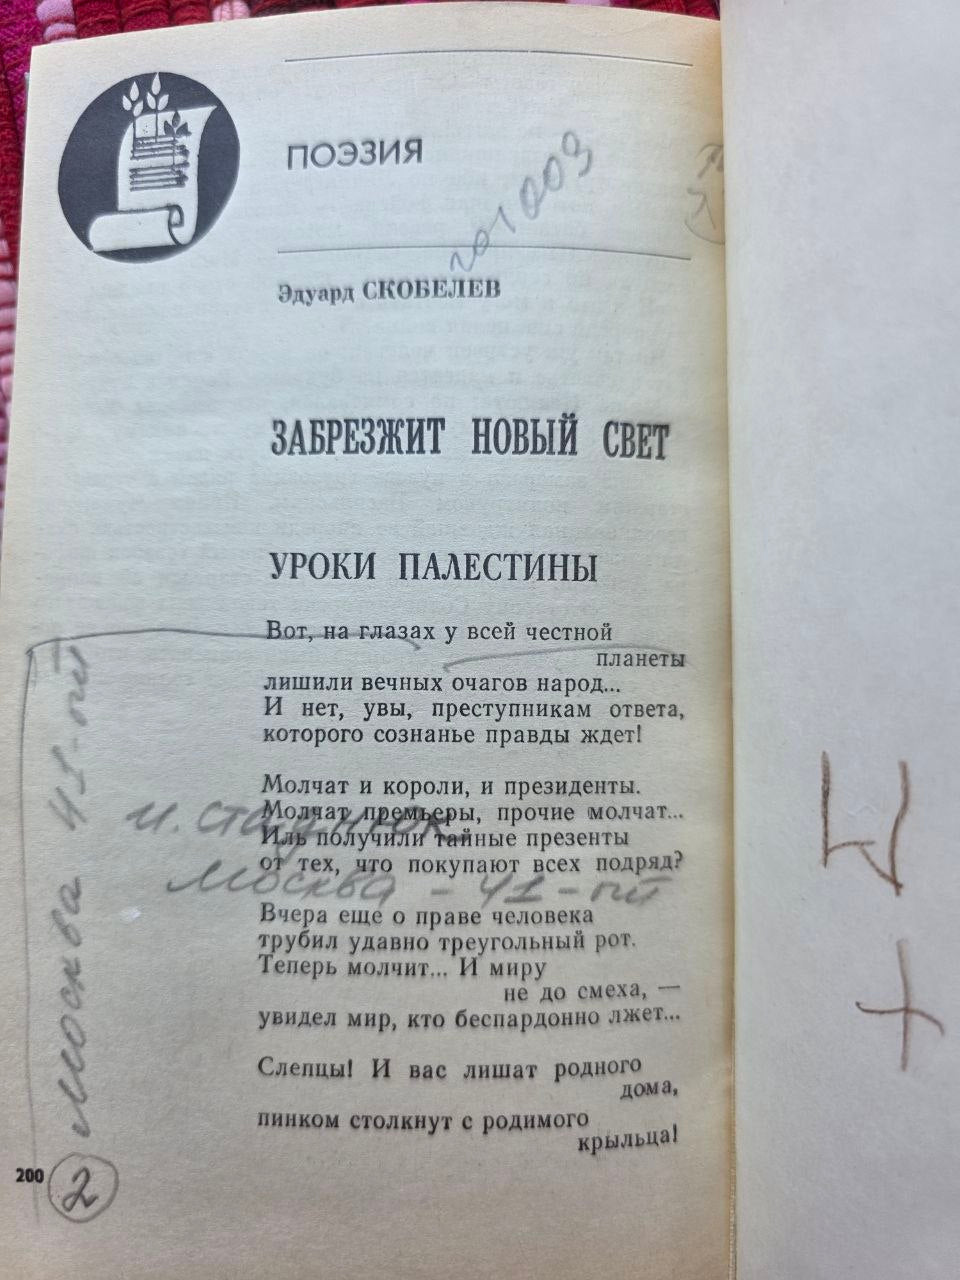 ПОЭЗИЯ
201009
Эдуард СКОБЕЛЕВ
ЗАБРЕЗЖИТ НОВЫЙ СВЕТ
УРОКИ ПАЛЕСТИНЫ
Вот, на глазах у всей честной
планеты
лишили вечных очагов народ...
И нет, увы, преступникам ответа,
которого сознанье правды ждет!
Молчат и короли, и президенты.
Молчат премьеры, прочие молчат...
Иль получили тайные презенты
от тех, что покупают всех подряд?
Вчера еще о праве человека
трубил удавно треугольный рот.
Теперь молчит... И миру
не до смеха, —
увидел мир, кто беспардонно лжет...
Слепцы! И вас лишат родного
дома,
пинком столкнут с родимого
крыльца!
200
2
И. Стаднюк
Москва - 41-ый
Москва 41-ый